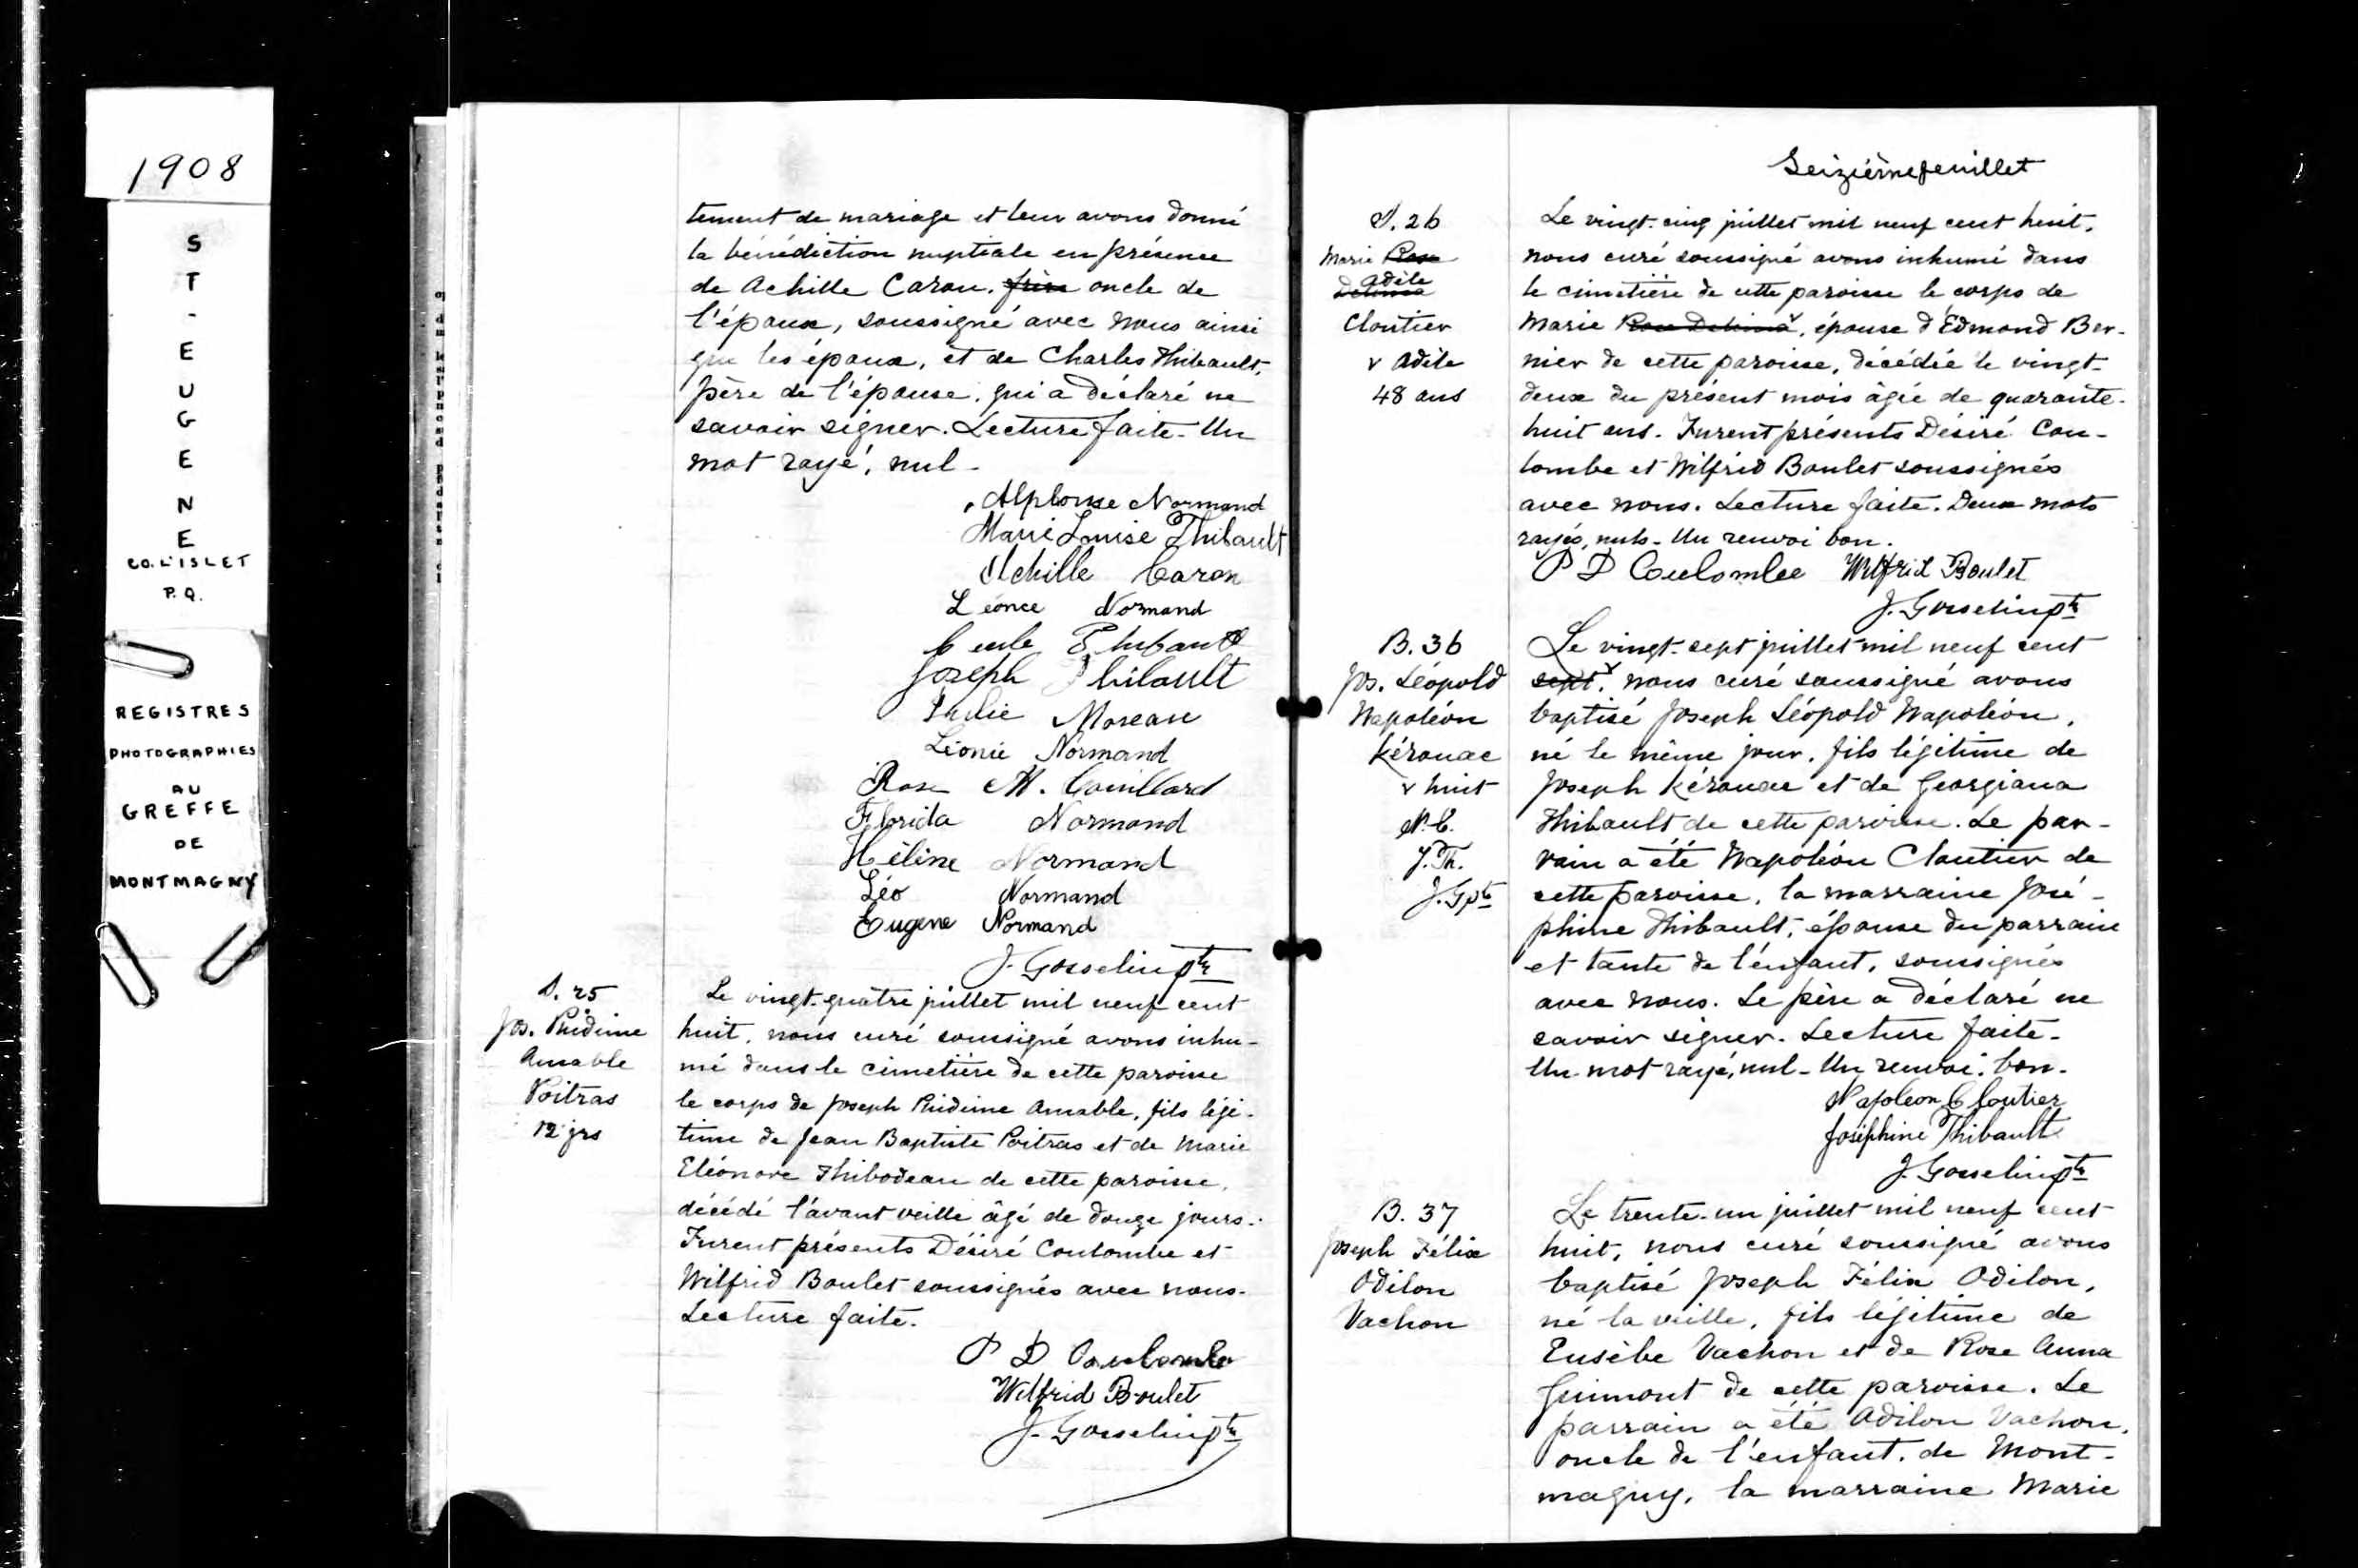 1908
ST-EUGENE
CO. L'ISLET
P.Q.
REGISTRES
PHOTOGRAPHIES
AU
GREFFE
DE
MONTMAGNY
tement de mariage et leur avons donné
la bénédiction nuptiale en présence
de Achille Caron, frère oncle de
l'époux, soussigné avec nous ainsi
que les époux, et de Charles Thibault,
père de l'épouse, qui a déclaré ne
savoir signer. Lecture faite. Un
mot rayé, nul.
Alphonse Normand
Marie Louise Thibault
Achille Caron
Léonce Normand
Thibault
Joseph Thibault
Julie Moreau
Léonie Normand
Rose M. Couillard
Florida Normand
Hélène Normand
Léo Normand
Eugene Normand
J. Gosselin ptre
S. 25
Jos. Phidime
Amable
Poitras
12 jrs
Le vingt-quatre juillet mil neuf cent
huit, nous curé soussigné avons inhu-
mé dans le cimetière de cette paroisse
le corps de Joseph Phidime Amable, fils légi-
time de Jean Baptiste Poitras et de Marie
Eléonore Thibodeau de cette paroisse,
décédé l'avant veille âgé de douze jours.
Furent présents Désiré Coulombe et
Wilfrid Boulet soussignés avec nous.
Lecture faite.
P D Coulombe
Wilfrid Boulet
J. Gosselin ptre
Seizième feuillet
S. 26
Marie Rose
Adèle
Delima
Cloutier
v Adèle
48 ans
Le vingt-cinq juillet mil neuf cent huit,
nous curé soussigné avons inhumé dans
le cimetière de cette paroisse le corps de
Marie Rose Delima v, épouse d'Edmond Ber-
nier de cette paroisse, décédée le vingt-
deux du présent mois âgée de quarante-
huit ans. Furent présents Désiré Cou-
lombe et Wilfrid Boulet soussignés
avec nous. Lecture faite. Deux mots
rayés, nuls. Un renvoi bon.
P D Coulombe Wilfrid Boulet
J. Gosselin ptre
B. 36
Jos. Léopold
Napoléon
Kérouac
v huit
N. C.
J. Th.
J. G ptre
Le vingt-sept juillet mil neuf cent
sept v, nous curé soussigné avons
baptisé Joseph Léopold Napoléon,
né le même jour, fils légitime de
Joseph Kérouac et de Georgiana
Thibault de cette paroisse. Le par-
rain a été Napoléon Cloutier de
cette paroisse, la marraine José-
phine Thibault, épouse du parrain
et tante de l'enfant, soussignés
avec nous. Le père a déclaré ne
savoir signer. Lecture faite.
Un mot rayé, nul. Un renvoi bon.
Napoleon Cloutier
Joséphine Thibault
J. Gosselin ptre
B. 37
Joseph Félix
Odilon
Vachon
Le trente-un juillet mil neuf cent
huit, nous curé soussigné avons
baptisé Joseph Félix Odilon,
né la veille, fils légitime de
Eusèbe Vachon et de Rose Anna
Guimont de cette paroisse. Le
parrain a été Odilon Vachon,
oncle de l'enfant, de Mont-
magny, la marraine Marie